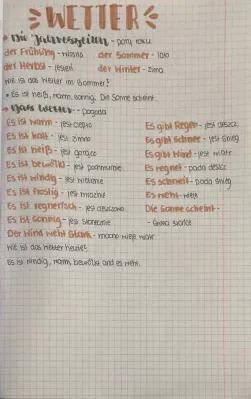 WETTER
Die Jahreszeiten - pory roku
der Frühling - wiosna der Sommer - lato
der Herbst - jesień der Winter - zima
Wie ist das Wetter im Sommer?
Es ist heiß, warm, sonnig. Die Sonne scheint
Das Wetter - pogoda
Es ist warm - jest ciepło
Es ist kalt - jest zimno
Es ist heiß - jest gorąco
Es ist bewölkt - jest pochmurnie
Es ist windig - jest wietrznie
Es ist frostig - jest mroźnie
Es ist regnerisch - jest deszczowo
Es ist sonnig - jest słonecznie
Der Wind weht stark - mocno wieje wiatr
Wie ist das Wetter heute?
Es ist windig, warm, bewölkt and es weht.
Es gibt Regen - jest deszcz
Es gibt Schnee - jest śnieg
Es gibt Wind - jest wiatr
Es regnet - pada deszcz
Es schneit - pada śnieg
Es weht - wieje
Die Sonne scheint -
- świeci słońce